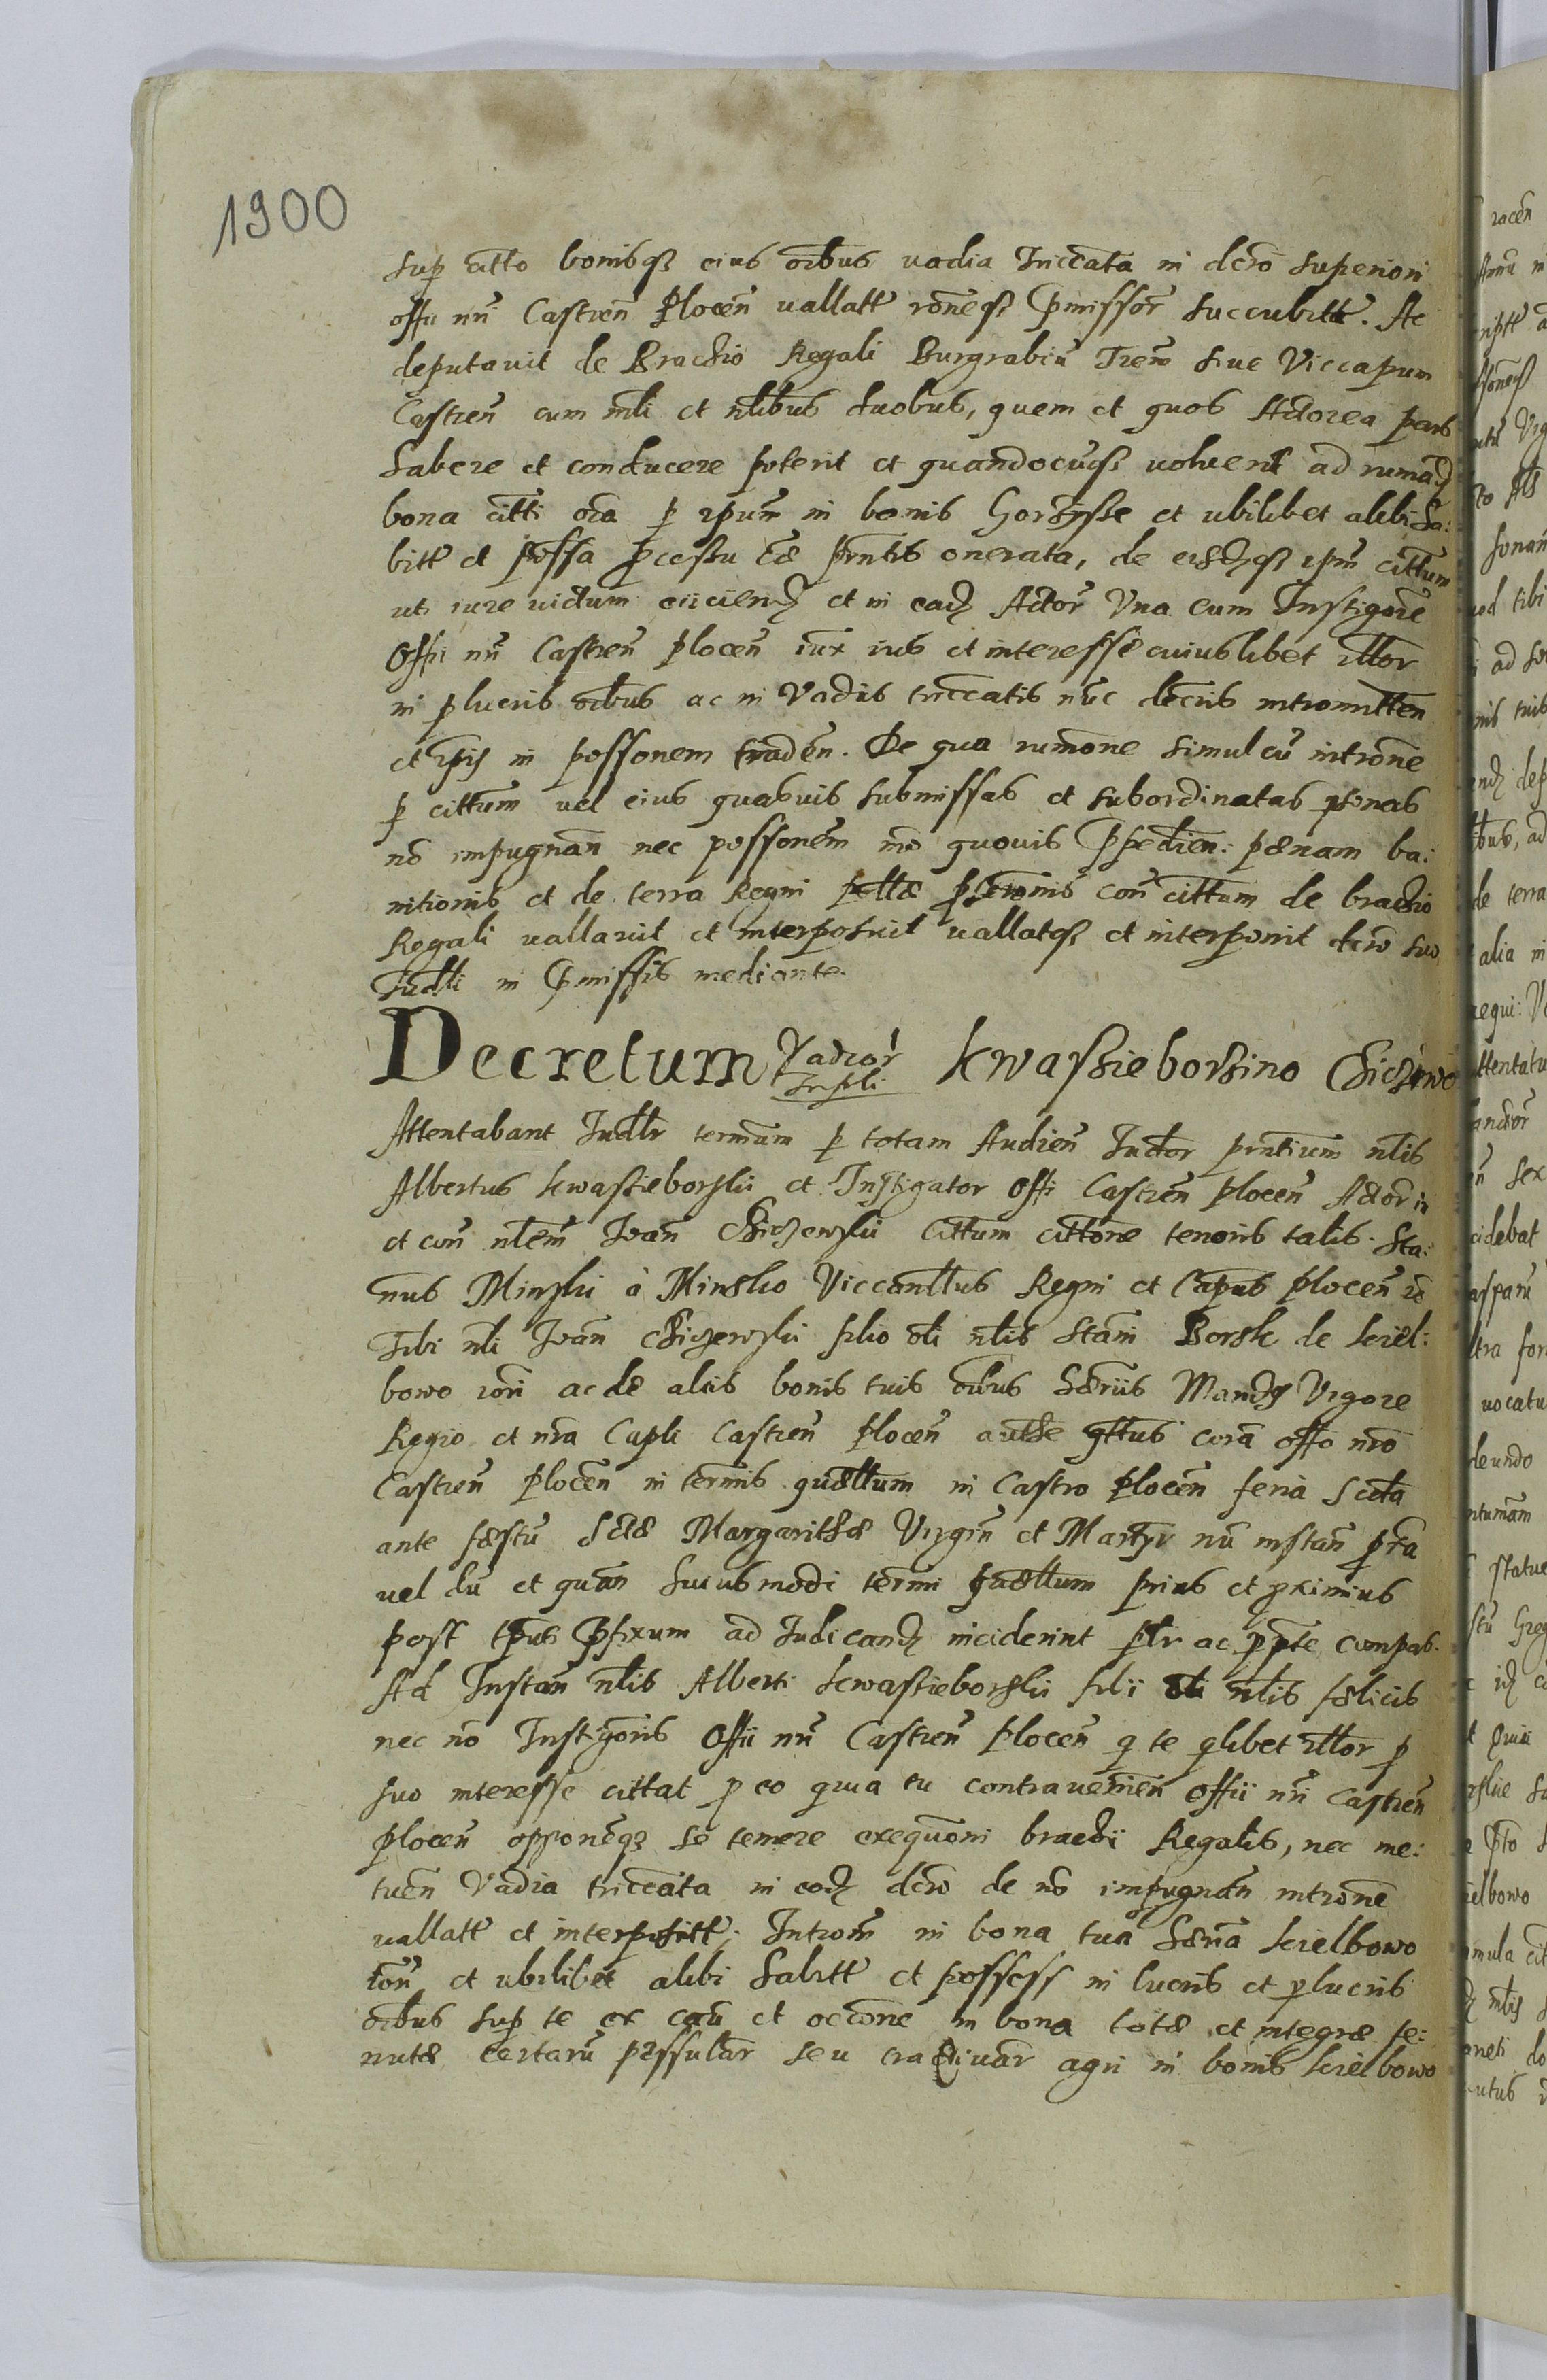 1900
sup citto bonisqz eius oibus vadia Triccata in dcro superiori
offii nri Castren Plocen vallatt roneqz pmissor succubitt. Ac
deputavit de Brachio Regali Burgrabiu Trem sive Viccapum
Castren cum mli et nlibus duobus, quem et quos Actorea pars
habere et conducere poterit et quandocuqz voluerit ad rumad
bona citti oia p ipum in bonis et ubilibet alibi ha:
bitt et possa pcessu prntis onerata, de eisdqz ipm cittum
uti iure victum eiiciend et in ead Actor Una cum Instigore
Offii nri Castren Plocen iux ius et interesse cuiuslibet illor
in plucris oibus ac in Vadiis triccatis nuc lucris intromitten
et ipis in possonem traden. De qua rumone simul cu introne
p cittum vel eius quasvis submissas et subordinatas psonas
no impugnan nec possonem mo quovis ppedien: pænam ba:
nitionis et de terra Regni pllæ pscronis con cittum de brachio
Regali vallavit et interposuit vallatqz et interponit dcro suo
Iudli in pmissis mediante.
Decretum Vadior Inpli Kwassieborskino Chiczewo
Attentabant Iudlr termum p totam Audien Iudor prntium nlis
Albertus Kwassieborskii et Instigator Offi Castren Plocen Actor in
et con nlem Ioan Chiczewskii Cittum cittone tenoris talis. Sta:
nus Minskii à Minsko Viccanllus Regni et Capus Plocen
Tibi nli Ioan Chiczewskii filio oli nlis Stani Borsk de Kiel:
bowo iori ac de aliis bonis tuis oibus hæriis Mandg Vigore
Regio et nra Capli Castren Plocen authe qttus cora offo nro
Castren Plocen in termis quællum in Castro Plocen feria Scda
ante fæstu Sctæ Margarithæ Virgin et Martyr nu instan pra
vel du et quan huiusmodi termi quællum prius et pximius
post tpus pfixum ad Iudicand inciderint plr ac ppte compas.
Ad Instan nlis Alberti Kwassieborskii filii oli nlis fælicis
nec no Instigoris Offii nri Castren Plocen q te qlibet illor p
suo interesse cittat p eo quia tu contravenien Offii nri Castren
Plocen opponeqz se temere exequoni brachii Regalis, nec me:
tuen Vadia triccata in eod dcro de no impugnan introne
vallatt et interpositt; Introm in bona tua hæria Kielbowo
ion et ubilibet alibi habitt et possess in lucris et plucris
oibus sup te ex cau et occone in bona totæ et integræ te:
nutæ certaru pessular seu agri in bonis Kielbowo